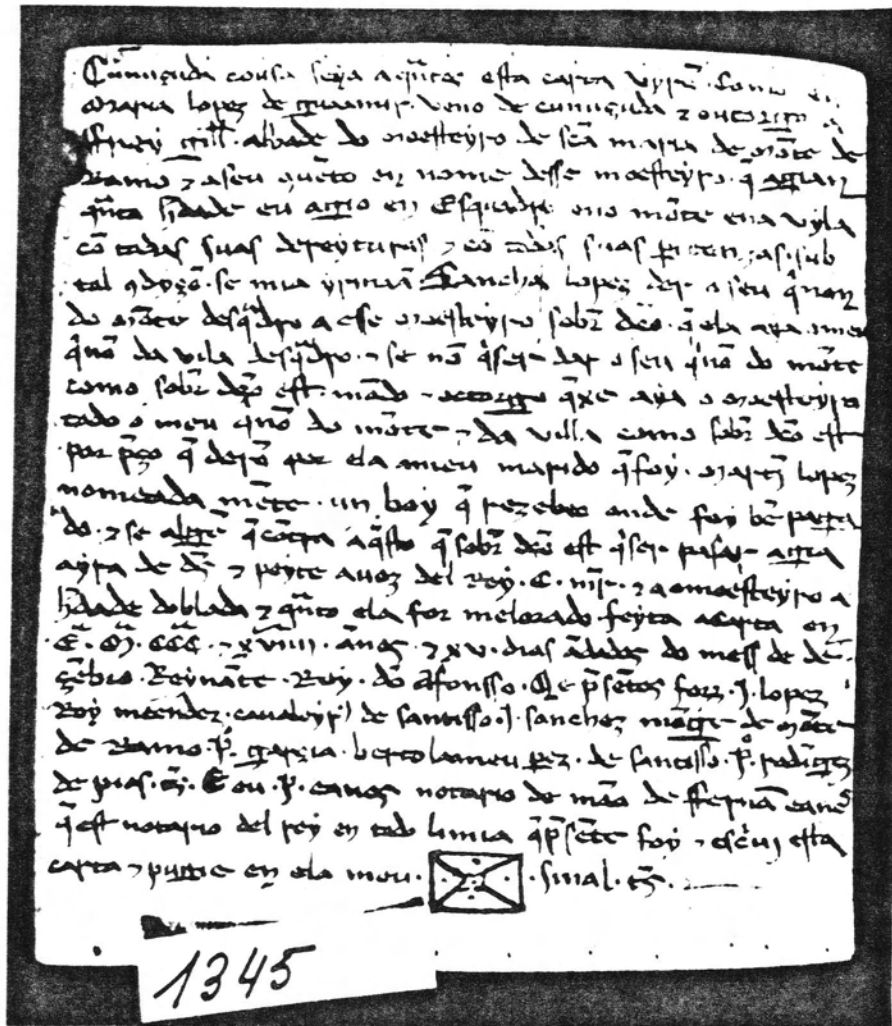 Cunuçuda cousa seya a quantos esta carta vyrẽ. Como eu
Maria lopez de veno de cunuçuda ⁊ outorigo a
ffrey gill. abade do moesteyro de scã maria de mõte de
Ramo ⁊ a seu cuuẽto en nome desse moesteyro. q̃
quanta hdade eu en Esquadro eno mõte ena vyla
cõ todas suas dereyturas ⁊ cõ todas suas sub
tal 9dyçõ. se mia yrmaã Sancha lopez der o seu q̃nõ
do mõte desquadro a esse moesteyro sobr dc̃o. q̃ ela aia meu
q̃nõ da vila desquadro. ⁊ se nõ q̃ser dar o seu q̃nõ do mõte
como sobr dc̃o est. mãdo ⁊ octorigo q̃xe aya o moesteyro
todo o meu quinõ do mõte ⁊ da villa como sobr dc̃o est
por p̃ço q̃ derõ por ela a meu marido q̃ foy. Martĩ lopez
nomeada mẽte. un boy q̃ rezebeo onde foy bẽ paga
do. ⁊ se alguẽ q̃ cõtra aq̃sto q̃ sobr dc̃o est q̃ser pasar agia
ayra de ds̃ ⁊ peyte a uoz del Rey. C. mr̃. ⁊ ao moesteyro a
hdade doblada ⁊ quanto ela for melorado feyta a carta en
Eª. Mª. CCCª. ⁊ xviiii. ãnos. ⁊ xv. dias ãdados do mess de de
zẽbrio. Reynãte. Rey. dõ Afonsso. Que p̃sẽtes forõ. J. lopez
Roy meendez. caualeyr de santisso. J. sanchez mõge de mõte
de Ramo. P. garzia. bertolameu pez. de santisso. P. rodigez
de pias. ts̃. E eu. P. eanes notario de mão de ffernã eanes
q̃ est notario del rey en todo limia q̃ p̃sẽte foy ⁊ escriui esta
carta ⁊ pugie en ela meu. sinal. ts̃.
1345